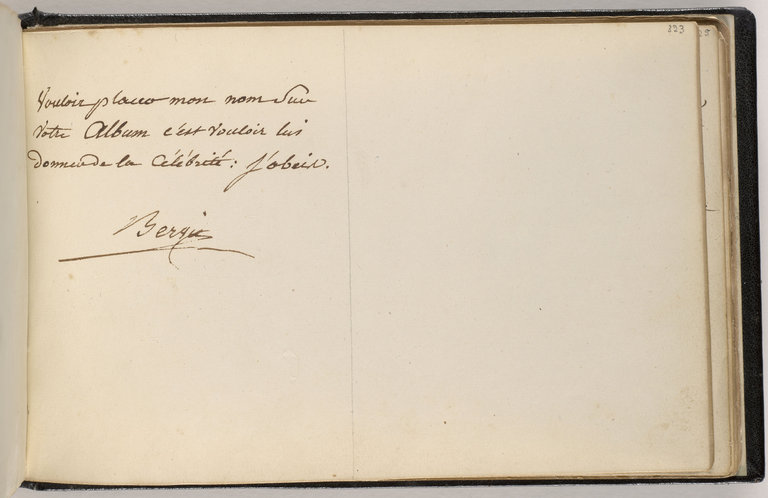 823
25
Vouloir placer mon nom Sur
Votre Album c'est Vouloir lui
donner de la Célébrité: j'obeis.